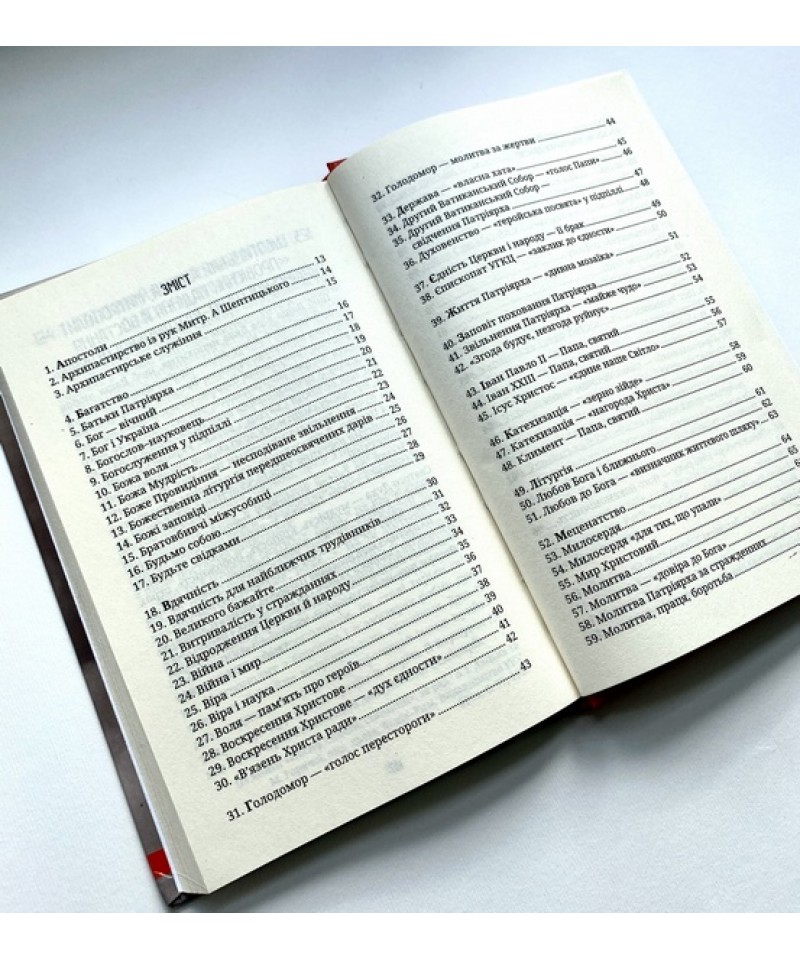 ЗМІСТ
1. Апостоли 13
2. Архипастирство із рук Митр. А Шептицького 14
3. Архипастирське служіння 15
4. Багатство 16
5. Батьки Патріярха 17
6. Бог — вічний 18
7. Бог і Україна 19
8. Богослов-науковець 20
9. Богослужения у підпіллі 21
10. Божа воля 22
11. Божа Мудрість 23
12. Боже Провидіння — несподіване звільнення 24
13. Божественна літургія передшеосвячених дарів 25
14. Божі заповіді 26
15. Братовбивчі міжусобиці 27
16. Будьмо собою 28
17. Будьте свідками 29
18. Вдячність 30
19. Вдячність для найближчих трудівників 31
20. Великого бажайте 32
21. Витривалість у стражданнях 33
22. Відродження Церкви й народу 34
23. Війна 35
24. Війна і мир 36
25. Віра 37
26. Віра і наука 38
27. Воля — пам'ять про героїв 39
28. Воскресення Христове 40
29. Воскресення Христове — «дух єдности» 41
30. «В'язень Христа ради» 42
31. Голодомор — «голос перестороги» 43
32. Голодомор — молитва за жертви 44
33. Держава — «власна хата» 45
34. Другий Ватиканський Собор — «голос Папи» 46
35. Другий Ватиканський Собор —
свідчення Патріярха 47
36. Духовенство — «геройська посвята» у підпіллі 48
37. Єдність Церкви і народу — її брак 49
38. Єпископат УГКЦ — «заклик до єдности» 50
39. Життя Патріярха — «дивна мозаїка» 51
40. Заповіт поховання Патріярха 52
41. Звільнення Патріярха — «майже чудо» 53
42. «Згода будує, незгода руйнує» 54
43. Іван Павло ІІ — Папа, святий 55
44. Іван ХХІІІ — Папа, святий 56
45. Ісус Христос — «єдине наше Світло» 57
46. Катехизація — «зерно зійде» 58
47. Катехизація — «нагорода Христа» 59
48. Климент — Папа, святий 60
49. Літургія 61
50. Любов Бога і ближнього 62
51. Любов до Бога — «визначник життєвого шляху» 63
52. Меценатство 64
53. Милосердя 65
54. Милосердя «для тих, що упали»
55. Мир Христовий
56. Молитва
57. Молитва — «довіра до Бога»
58. Молитва Патріярха за стражденних
59. Молитва, праця, боротьба